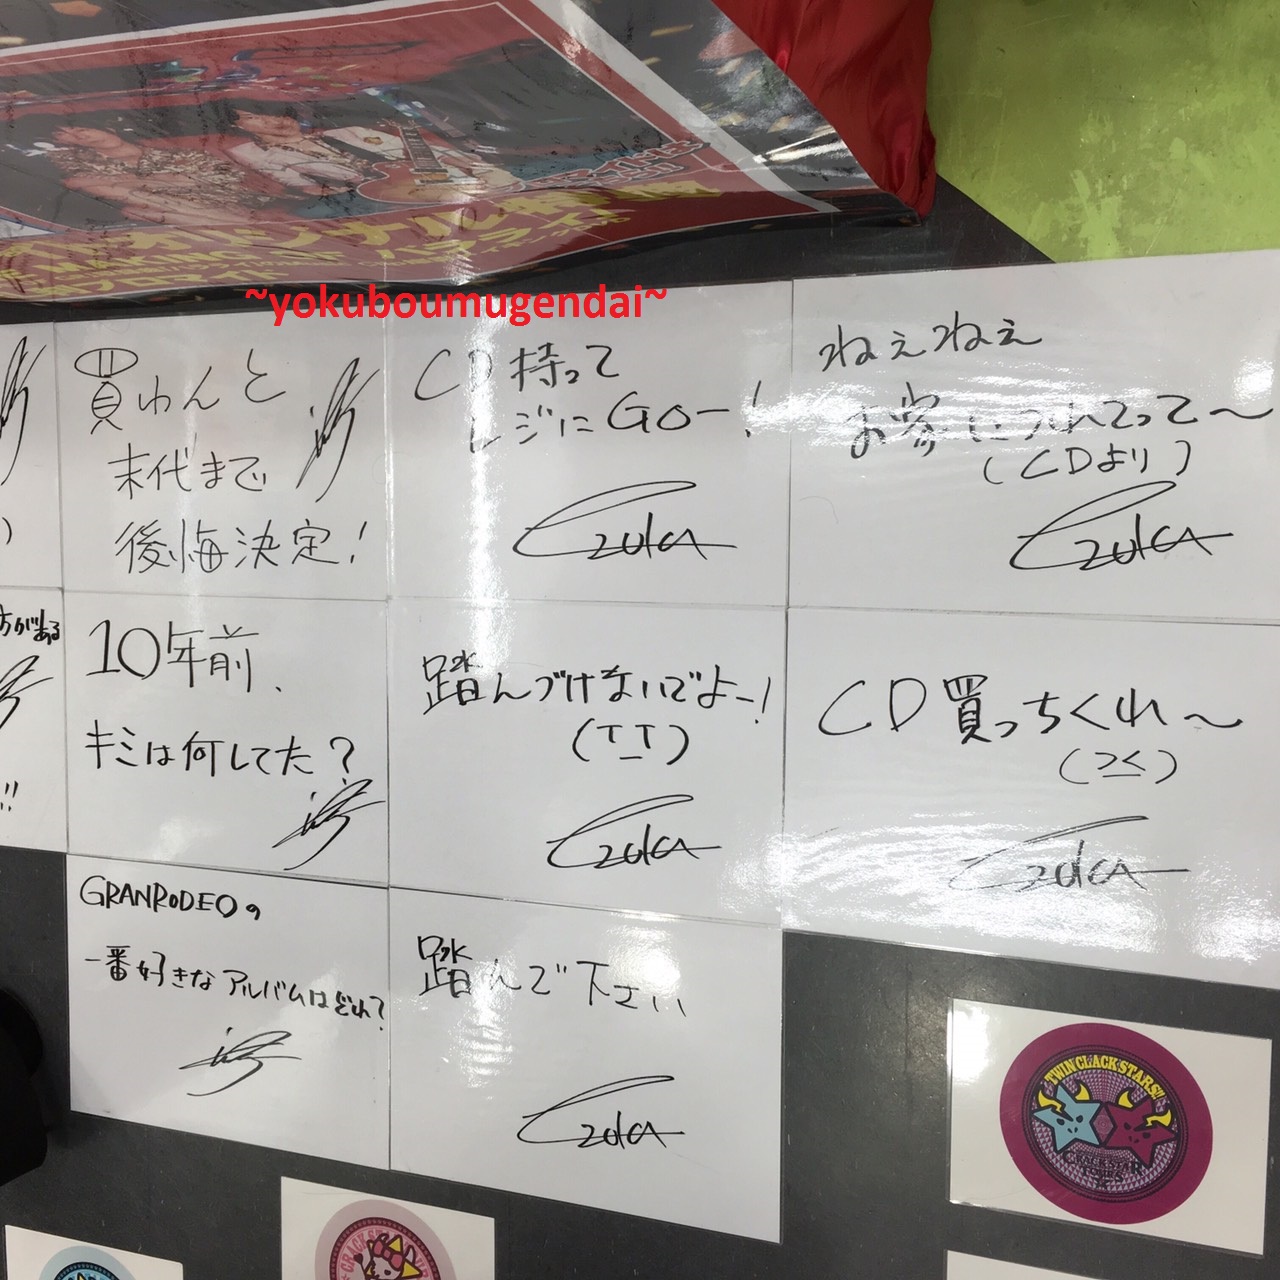 ~yokuboumugendai~
買わんと
末代まで
後悔決定!
CD持って
レジにGOー!
Ezuka
ねぇねぇ
お客に入れてって〜
(CDより)
Ezuka
方がある
!!
10年前、
キミは何してた?
踏んづけないでよー!
(T_T)
Ezuka
CD買っちくれ〜
Ezuka
GRANRODEOの
一番好きなアルバムはどれ?
踏んで下さい
Ezuka
TWIN CLACK STARS!!